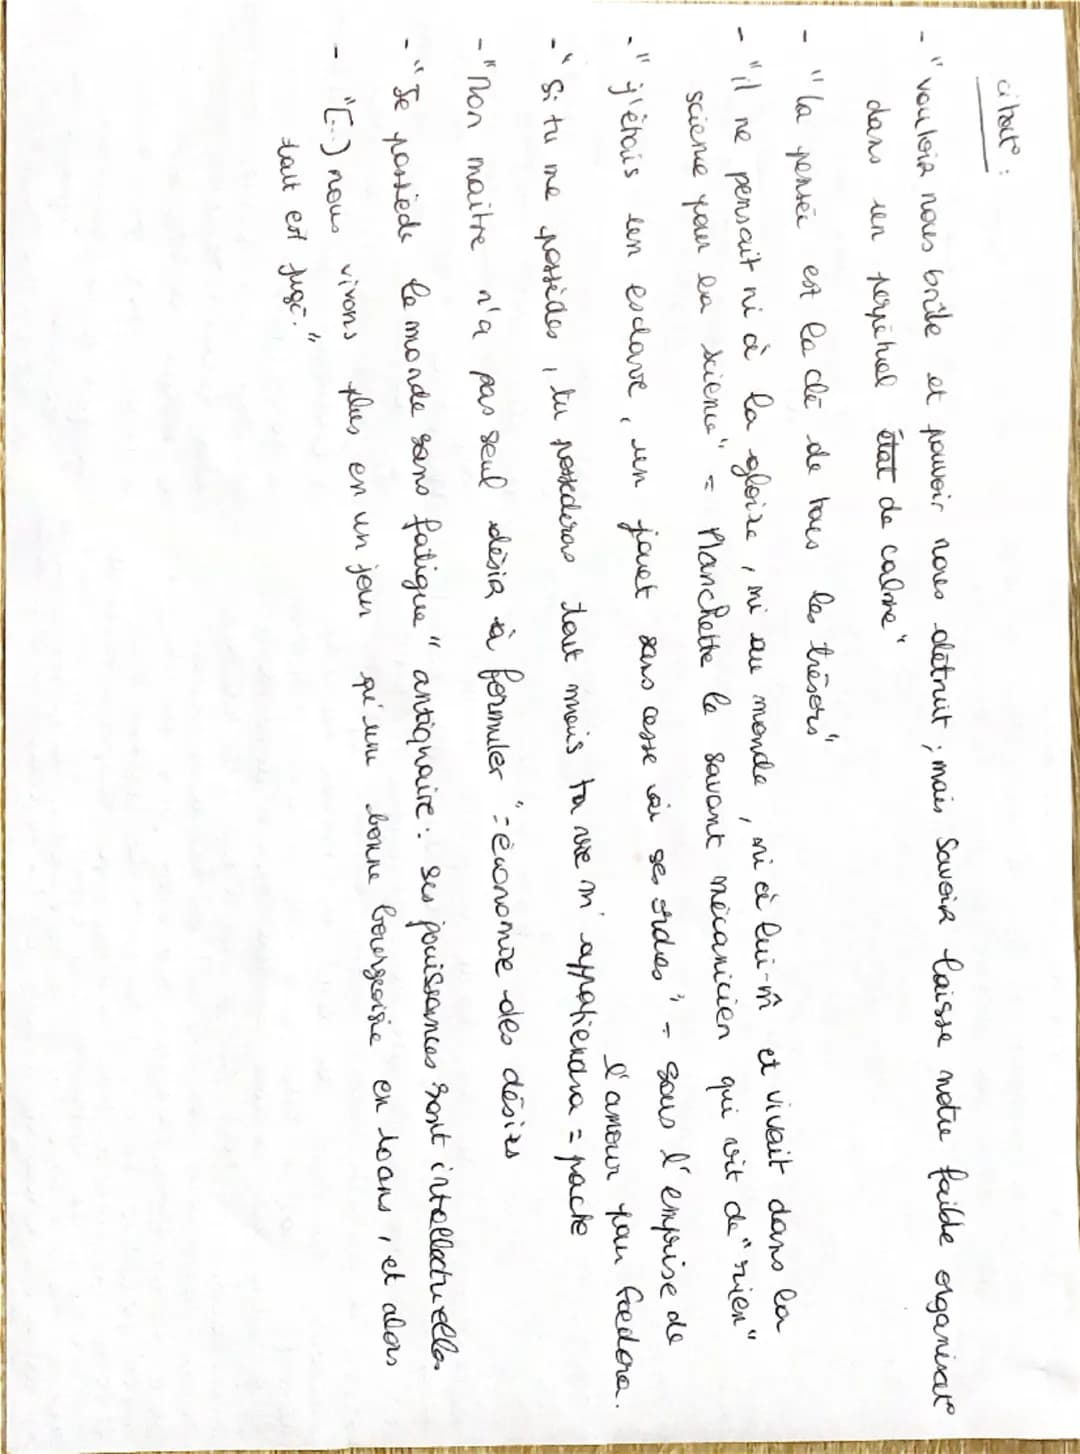 citat° :
- "vouloir nous brûle et pouvoir nous détruit ; mais savoir laisse notre faible organisat°
dans un perpétuel état de calme"
- "la pensée est la clé de tous les trésors"
- "il ne pensait ni à la gloire, ni au monde, ni à lui-m̂ et vivait dans la
science pour la science" = Planchette le savant mécanicien qui vit de "rien"
- "j'étais un esclave, un jouet sans cesse à ses ordres" = sous l'emprise de
l'amour pour Foedora.
- "Si tu me possèdes, tu possederas tout mais ta vie m'appatiendra = pacte
- "Mon maître n'a pas seul désir à formuler" = économie des désirs
- "Je possède le monde sans fatigue" antiquaire : ses puissances sont intellectuelles
- "[...) nous vivons plus en un jour qu'une bonne bourgeoisie en 10 ans, et alors
tout est jugé."